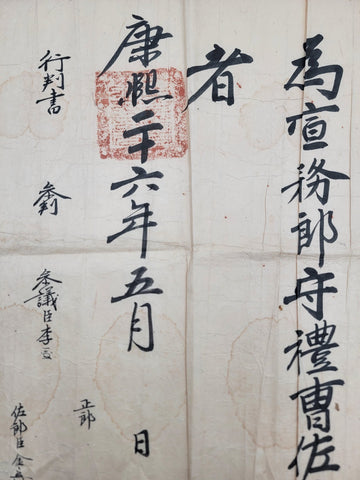 為宣務郎守禮曺佐
者
康熙二十六年五月 日
行判書
參判
參議臣李
正郎
佐郎臣金